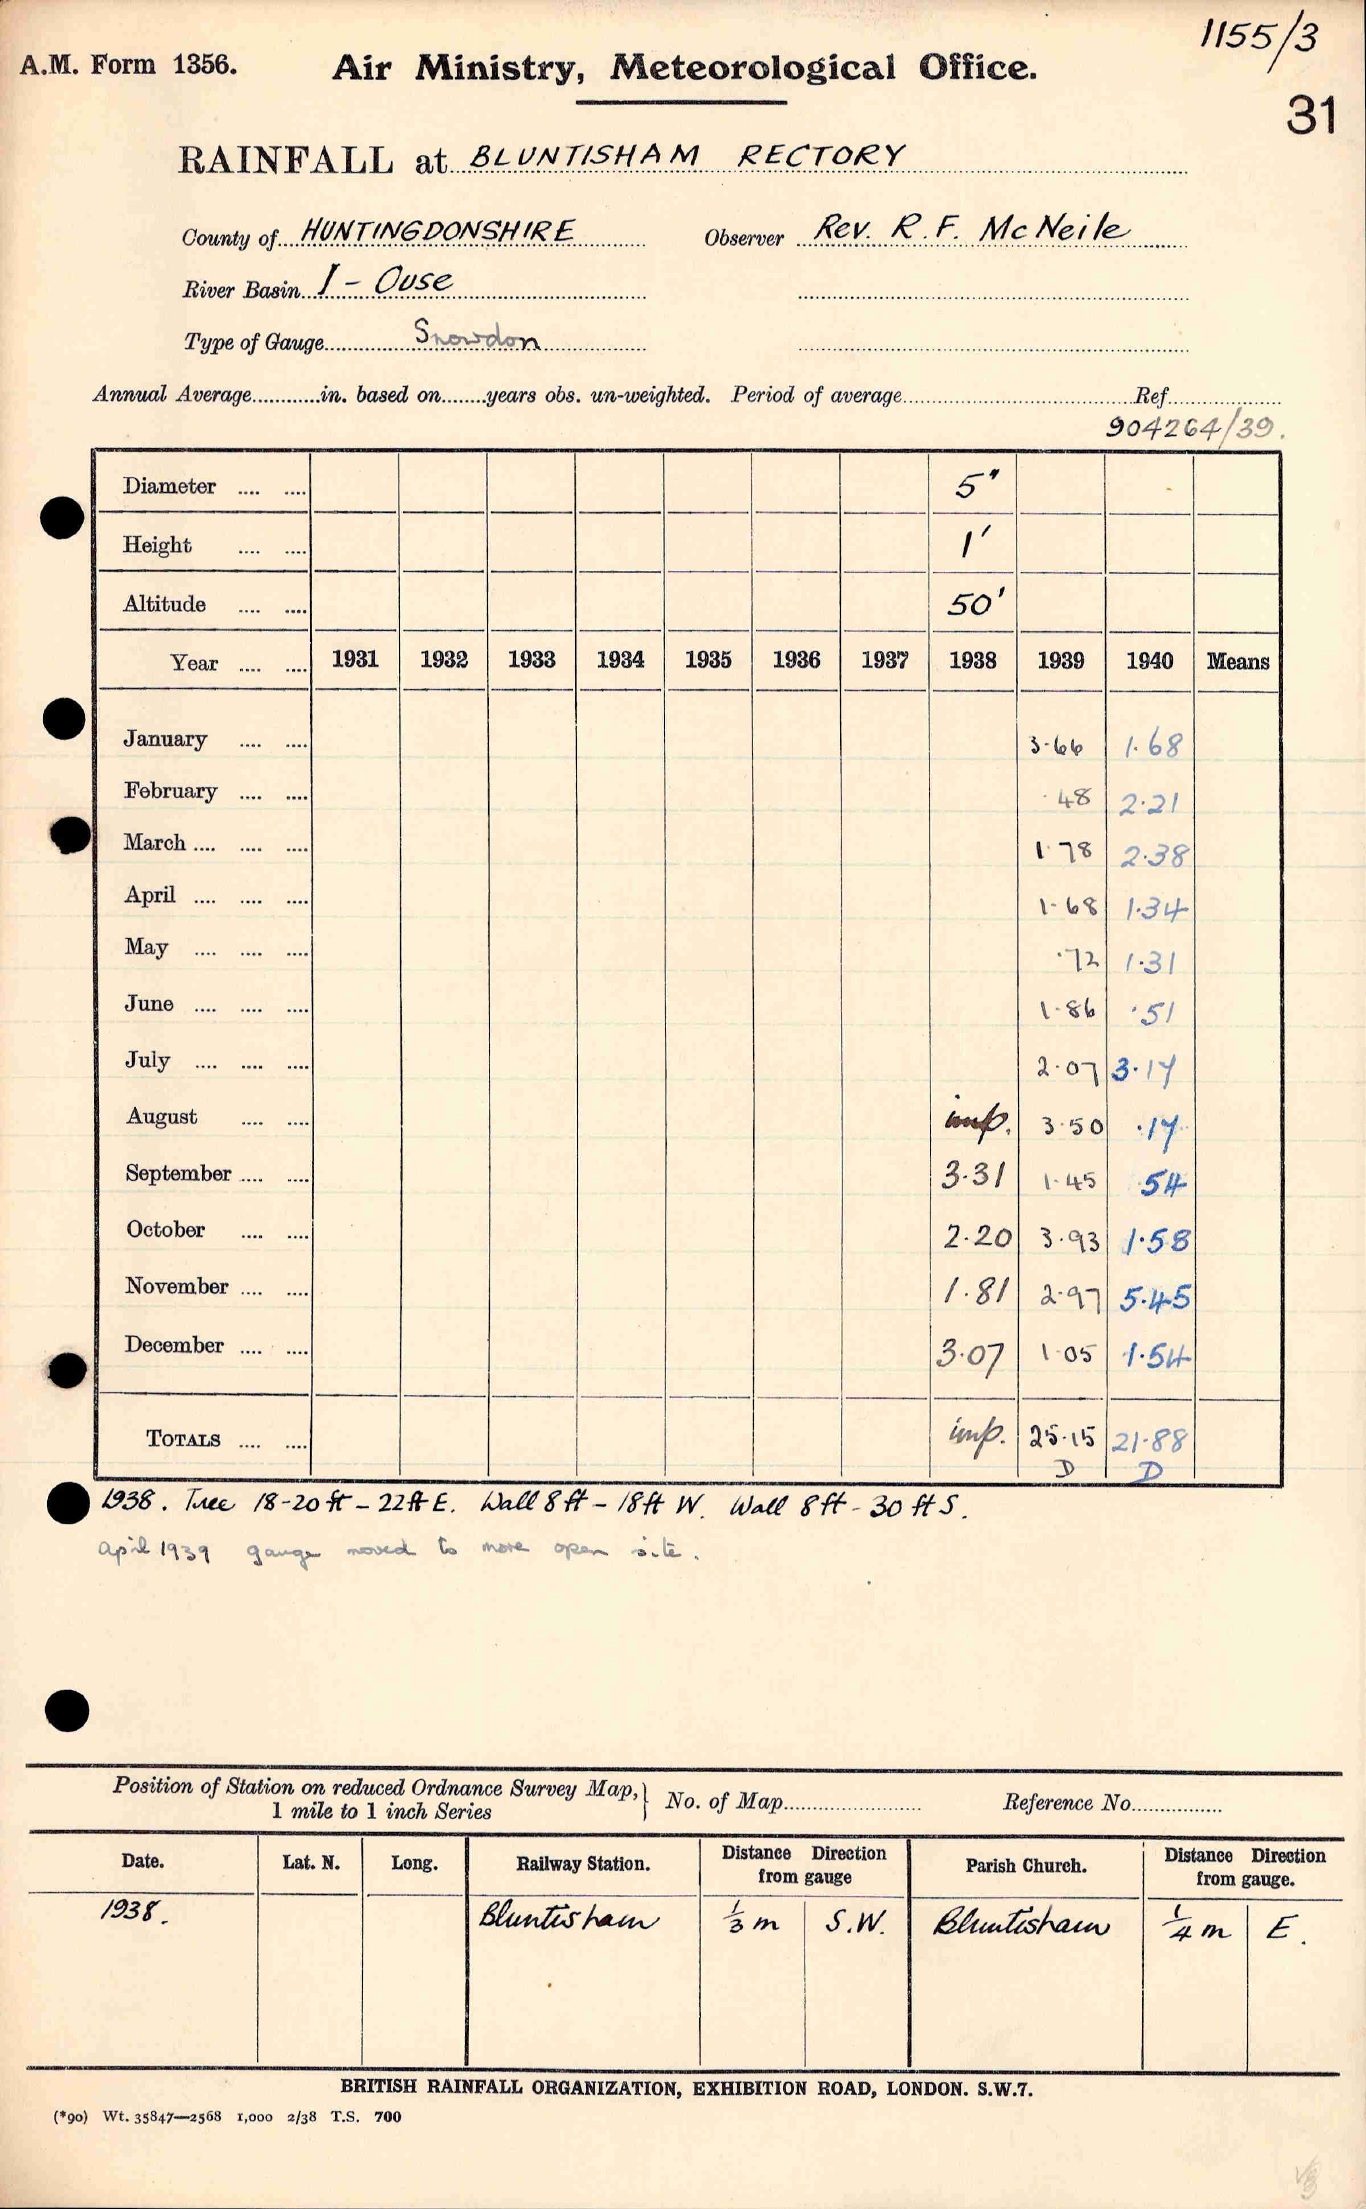 1155/3
A.M. Form 1356. Air Ministry, Meteorological Office.
31
RAINFALL at BLUNTISHAM RECTORY
County of HUNTINGDONSHIRE Observer Rev. R.F. McNeile
River Basin I - Ouse
Type of Gauge Snowdon
Annual Average............in. based on........years obs. un-weighted. Period of average.......... Ref..........
904264/39.
Diameter .... .... 5"
Height .... .... 1'
Altitude .... .... 50'
Year .... .... 1931 1932 1933 1934 1935 1936 1937 1938 1939 1940 Means
January .... .... 3.66 1.68
February .... .... .48 2.21
March .... .... .... 1.78 2.38
April .... .... .... 1.68 1.34
May .... .... .... .72 1.31
June .... .... .... 1.86 .51
July .... .... .... 2.07 3.17
August .... .... imp. 3.50 .17
September .... .... 3.31 1.45 .54
October .... .... 2.20 3.93 1.58
November .... .... 1.81 2.97 5.45
December .... .... 3.07 1.05 1.54
TOTALS .... .... imp. 25.15 21.88
D D
1938. Tree 18-20 ft - 22 ft E. Wall 8 ft - 18 ft W. Wall 8 ft - 30 ft S.
April 1939 gauge moved to more open site.
Position of Station on reduced Ordnance Survey Map, } No. of Map.......... Reference No..........
1 mile to 1 inch Series
Date. Lat. N. Long. Railway Station. Distance Direction from gauge Parish Church. Distance Direction from gauge.
1938. Bluntisham 1/3 m S.W. Bluntisham 1/4 m E.
BRITISH RAINFALL ORGANIZATION, EXHIBITION ROAD, LONDON. S.W.7.
(*90) Wt. 35847—2568 1,000 2/38 T.S. 700